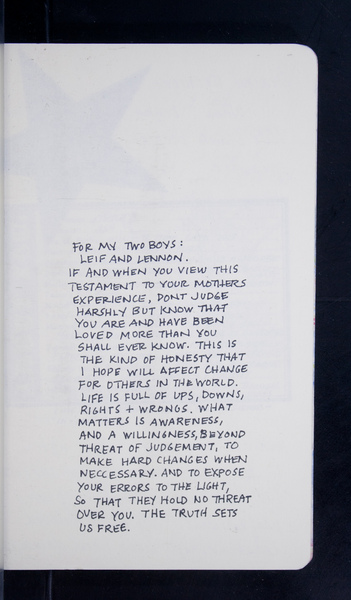 FOR MY TWO BOYS:
LEIF AND LENNON.
IF AND WHEN YOU VIEW THIS
TESTAMENT TO YOUR MOTHERS
EXPERIENCE, DONT JUDGE
HARSHLY BUT KNOW THAT
YOU ARE AND HAVE BEEN
LOVED MORE THAN YOU
SHALL EVER KNOW. THIS IS
THE KIND OF HONESTY THAT
I HOPE WILL AFFECT CHANGE
FOR OTHERS IN THE WORLD.
LIFE IS FULL OF UPS, DOWNS,
RIGHTS + WRONGS. WHAT
MATTERS IS AWARENESS,
AND A WILLINGNESS, BEYOND
THREAT OF JUDGEMENT, TO
MAKE HARD CHANGES WHEN
NECCESSARY. AND TO EXPOSE
YOUR ERRORS TO THE LIGHT,
SO THAT THEY HOLD NO THREAT
OVER YOU. THE TRUTH SETS
US FREE.